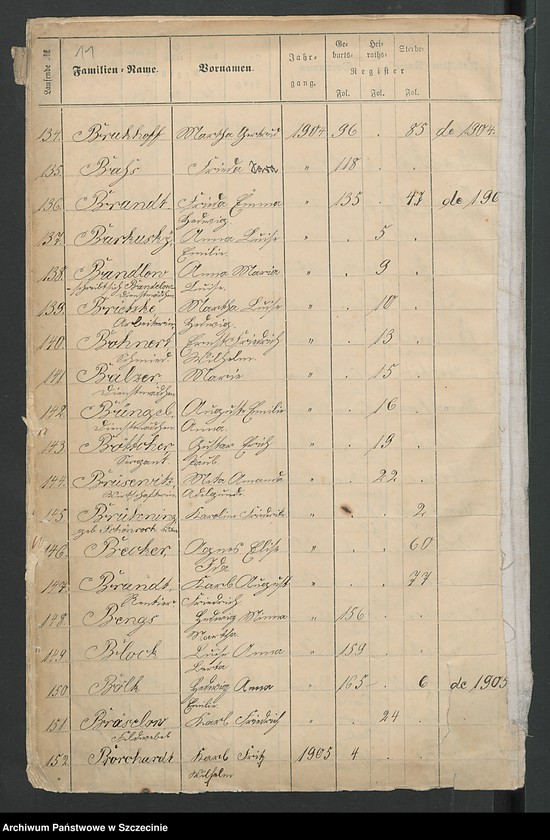 11
Laufende №
Familien-Name.
Vornamen.
Jahrgang.
Geburts- Heiraths- Sterbe-
Register
Fol. Fol. Fol.
134. Bruckhoff Martha Gertrud 1904 96 . 85 de 1904.
135. Bahs Frieda " 118 . .
136. Brandt Frieda Emma " 135 . 47 de 190
Hedwig
137. Anna Luise " . 5 .
Emilie
138. Bandlow Anna Maria " . 9 .
Dienstmädchen Luise.
139. Martha Luise " . 10 .
Arbeiterin Hedwig.
140. Bohnert Ernst Friedrich " . 13 .
Schmied Wilhelm.
141. Balzer Marie " . 15 .
Dienstmädchen
142. Büngel Auguste Emilie " . 16 .
Dienstmädchen Anna.
143. Böttcher Gustav Erich " . 19 .
Sergeant Paul.
144. Meta Amanda " . 22 .
Wirtschafterin Adelgunde.
145. Brühning Karoline Friederike " . . 2
geb. Schönrock
146. Becker Agnes Elise " . . 60
Ida
147. Brandt, Karl August " . . 77
Rentier Friedrich
148. Bengs Hedwig Minna " 156 . .
Martha
149. Block Luise Anna " 159 . .
Berta
150. Bölk Hedwig Anna " 165 . 6 de 1905
Emilie
151. Bräselow Karl Friedrich " . 24 .
Feldwebel
152. Borchardt Karl Fritz 1905 4 . .
Wilhelm
Archiwum Państwowe w Szczecinie